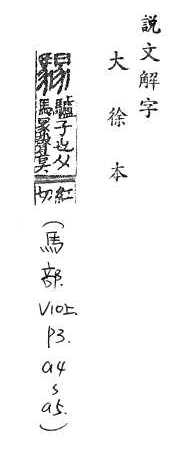 説文解字
大徐本
驢子也从
馬冡聲莫
紅
切
(馬
部.
V10上.
P3.
a4
s
a5.)